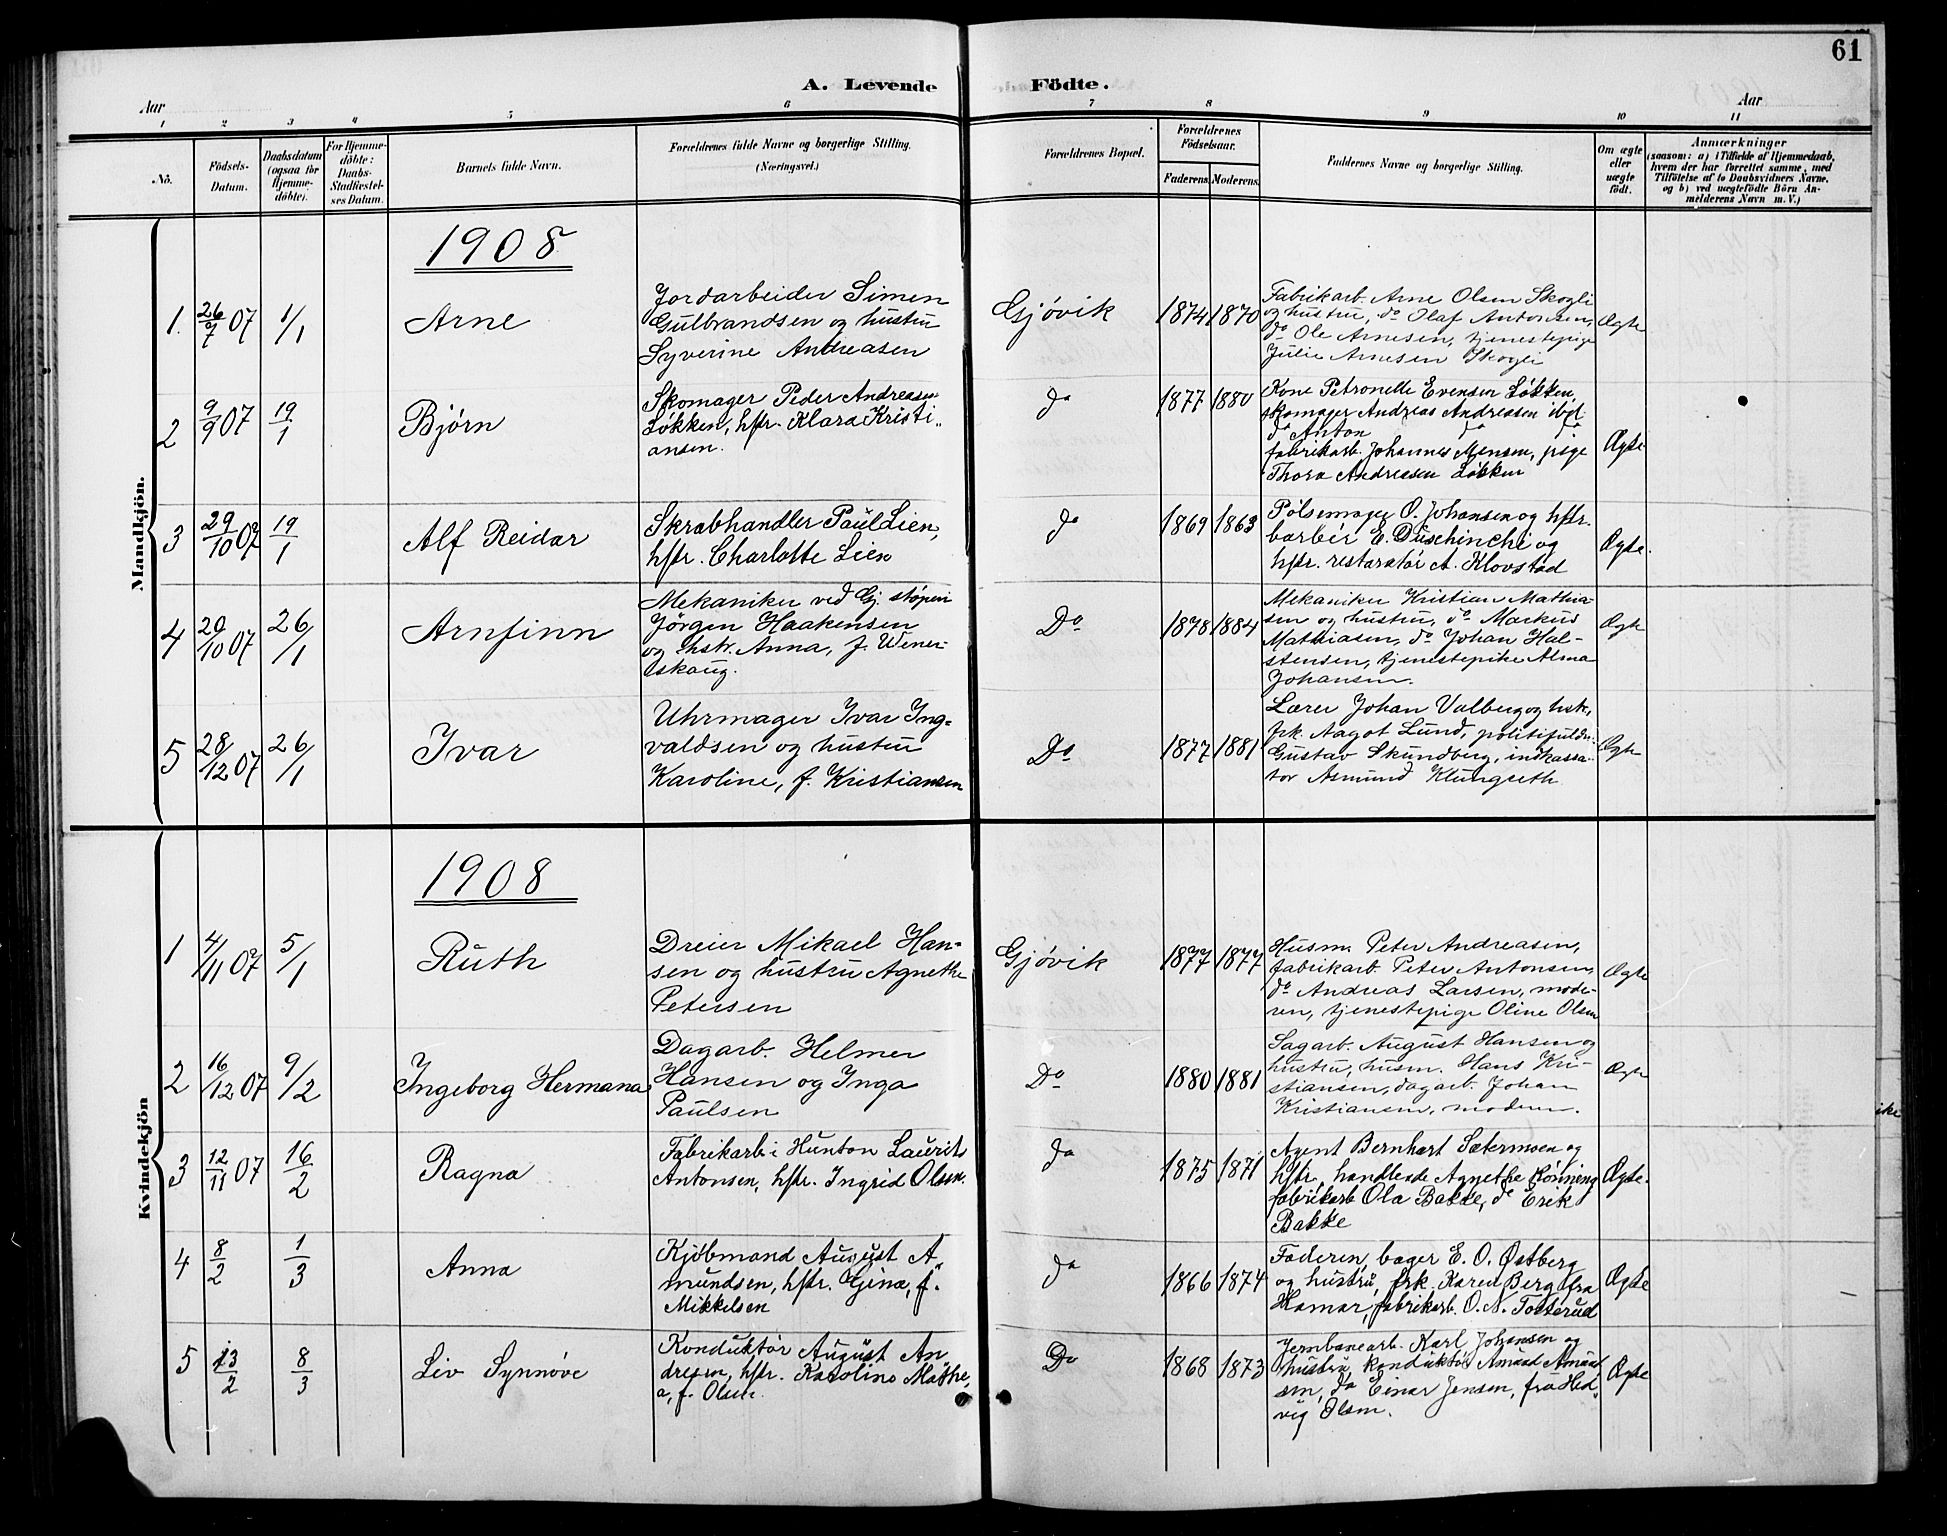 61
A. Levende Födte.
Aar
Aar
1 2 3 4 5 6 7 8 9 10 11
No.
Födsels-Datum.
Daabsdatum (ogsaa for Hjemme-döbte).
For Hjemme-döbte: Daabs-Stadfæstel-ses Datum.
Barnets fulde Navn.
Forældrenes fulde Navne og borgerlige Stilling. (Næringsvei.)
Forældrenes Bopæl.
Forældrenes Födselsaar.
Faderens. Moderens.
Faddernes Navne og borgerlige Stilling.
Om ægte eller uægte født.
Anmærkninger
(saasom: a) i Tilfælde af Hjemmedaab,
hvem der har forrettet samme, med
Tilföielse af to Daabsvidners Navne,
og b) ved uægtefödte Börn An-
melderens Navn m. V.)
Mandkjön.
1908
1. 26/7 07 1/1 Arne
Jordarbeider Simen
Gulbrandsen og hustru
Syverine Andreasen
Gjøvik 1874 1870
Fabrikarb. Arne Olsen Skogli
og hustru, do Olaf Antonsen,
do Ole Arnesen, tjenestepige
Julie Arnesen Skogli
Ægte
2 9/9 07 19/1 Bjørn
Skomager Peder Andreasen
Løkken, hstr. Klara Kristi-
ansen.
do 1877 1880
Kone Petronelle Evensen Løkken,
skomager Andreas Andreasen ibd.
do Anton do do
fabrikarb. Johannes Mensen, pige
Thora Andreasen Løkken
Ægte.
3 29/10 07 19/1 Alf Reidar
Skrabhandler Paul Lien,
hstr. Charlotte Lien
do 1869 1863
Pølsemager O. Johansen og hstr.
barbér E. Duschinchi og
hstr. restaratør A. Klovstad
Ægte.
4 20/10 07 26/1 Arnfinn
Mekaniker ved Gj. støperi
Jørgen Haakensen
og hstr. Anna, f. Wener-
skaug.
Do 1878 1884
Mekaniker Kristian Mathia-
sen og hustru, do Markus
Mathiasen, do Johan Hal-
stensen, tjenestepike Alma
Johansen.
Ægte
5 28/12 07 26/1 Ivar
Uhrmager Ivar Ing-
valdsen og hustru
Karoline, f. Kristiansen
Do 1877 1881
Lærer Johan Valberg og hsk.
frk. Aagot Lund, politifuldm.
Gustav Skundberg, inkassa-
tor Asmund Klungseth.
Ægte
Kvindekjön
1908
1 4/11 07 5/1 Ruth
Dreier Mikael Han-
sen og hustru Agnethe
Petersen
Gjøvik 1877 1877
Husm. Peter Andreasen,
fabrikarb. Peter Antonsen,
do Andreas Larsen, mode-
ren, tjenestepige Oline Olsen
Ægte
2 16/12 07 9/2 Ingeborg Hermana
Dagarb. Helmer
Hansen og Inga
Paulsen
Do 1880 1881
Sagarb. August Hansen og
hustru, husm. Hans Kri-
stiansen, dagarb. Johan
Kristiansen, moderen.
Ægte
3 12/11 07 16/2 Ragna
Fabrikarb. i Hunton Laurits
Antonsen, hstr. Ingrid Olsen.
do 1875 1871
Agent Bernhart Sætermoen og
hstr., handlende Agnethe Rönning
fabrikarb Ola Bakke, do Erik
Bakke
Ægte.
4 8/2 1/3 Anna
Kjöbmand August A-
mundsen, hstr. Gjena, f.
Mikkelsen
do 1866 1874
Faderen, bager E. O. Østberg
og hustru, frk. Karen Berg fra
Hamar, fabrikarb. O. N. Tosterud
Ægte
5 13/2 8/3 Liv Synnøve
Konduktør August An
dresen, hstr. Karoline Mathe,
a, f. Olsen.
Do 1868 1873
Jernbanearb. Karl Johansen og
hustru, konduktør Amund Amund
sen, do Einar Jensen, frø Hed-
vig Olsen.
Ægte